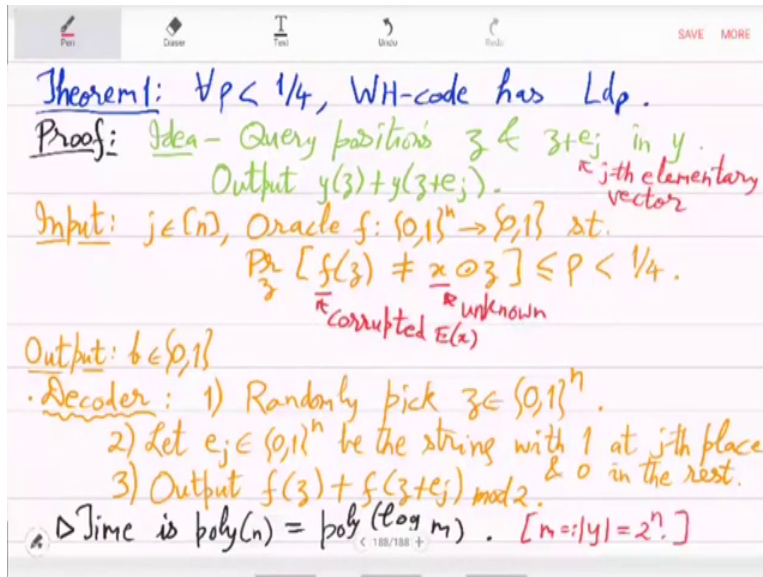 Pen Eraser Text Undo Redo SAVE MORE
Theorem1: ∀ρ < 1/4, WH-code has Ldp.
Proof: Idea - Query positions z & z+ej in y.
Output y(z)+y(z+ej).
↖ j-th elementary vector
Input: j∈[n], Oracle f: {0,1}ⁿ → {0,1} st.
Pr_z [f(z) ≠ x⊙z] ≤ ρ < 1/4.
↖ corrupted E(x) ↖ unknown
Output: b∈{0,1}
· Decoder: 1) Randomly pick z∈{0,1}ⁿ.
2) Let ej∈{0,1}ⁿ be the string with 1 at j-th place
& 0 in the rest.
3) Output f(z)+f(z+ej) mod 2.
▷ Time is poly(n) = poly(log m). [m=:|y|=2ⁿ.]
< 188/188 +